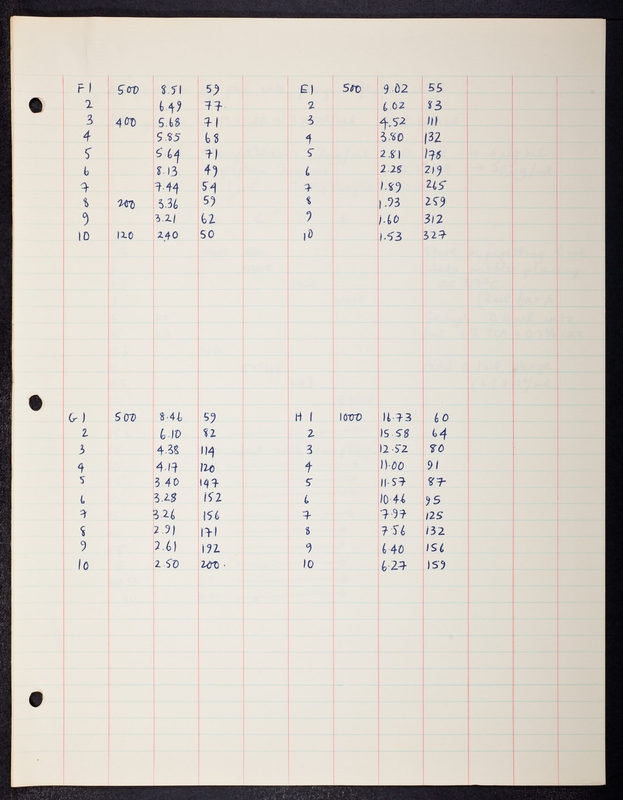 F1 500 8.51 59 E1 500 9.02 55
2 6.49 77. 2 6.02 83
3 400 5.68 71 3 4.52 111
4 5.85 68 4 3.80 132
5 5.64 71 5 2.81 178
6 8.13 49 6 2.28 219
7 7.44 54 7 1.89 265
8 200 3.36 59 8 1.93 259
9 3.21 62 9 1.60 312
10 120 2.40 50 10 1.53 327
G1 500 8.46 59 H1 1000 16.73 60
2 6.10 82 2 15.58 64
3 4.38 114 3 12.52 80
4 4.17 120 4 11.00 91
5 3.40 147 5 11.57 87
6 3.28 152 6 10.46 95
7 3.26 156 7 7.97 125
8 2.91 171 8 7.56 132
9 2.61 192 9 6.40 156
10 2.50 200. 10 6.27 159